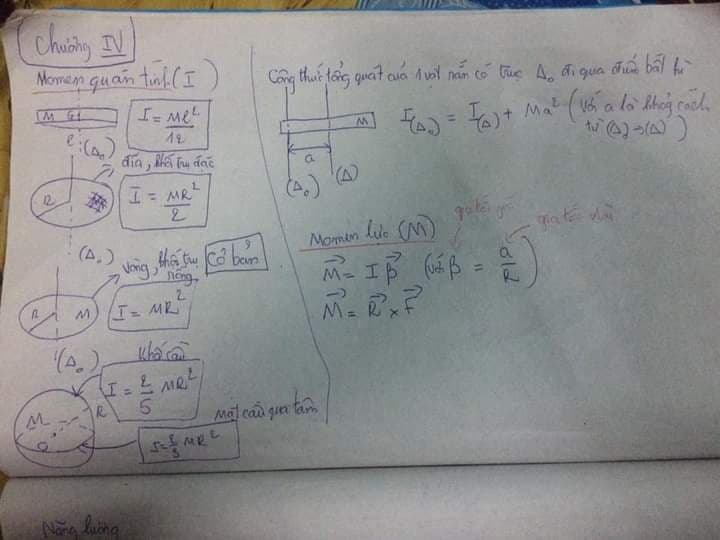 Chương IV
Momen quán tính (I)
M G
l
I = Ml²/12
(Δ₀)
đĩa, khối trụ đặc
R
I = MR²/2
(Δ₀)
vòng, khối trụ rỗng
Cơ bản
R M
I = MR²
(Δ₀)
Khối cầu
M R
O
I = 2/5 MR²
Mặt cầu qua tâm
I = 2/3 MR²
Công thức tổng quát của 1 vật rắn có trục Δ₀ đi qua điểm bất kì
M
a
(Δ₀) (Δ)
I(Δ₀) = I(Δ) + Ma² (với a là khoảng cách
từ (Δ₀) → (Δ))
Momen lực (M)
gia tốc góc
gia tốc dài
M⃗ = I β⃗ (với β = a/R)
M⃗ = R⃗ × F⃗
Năng lượng